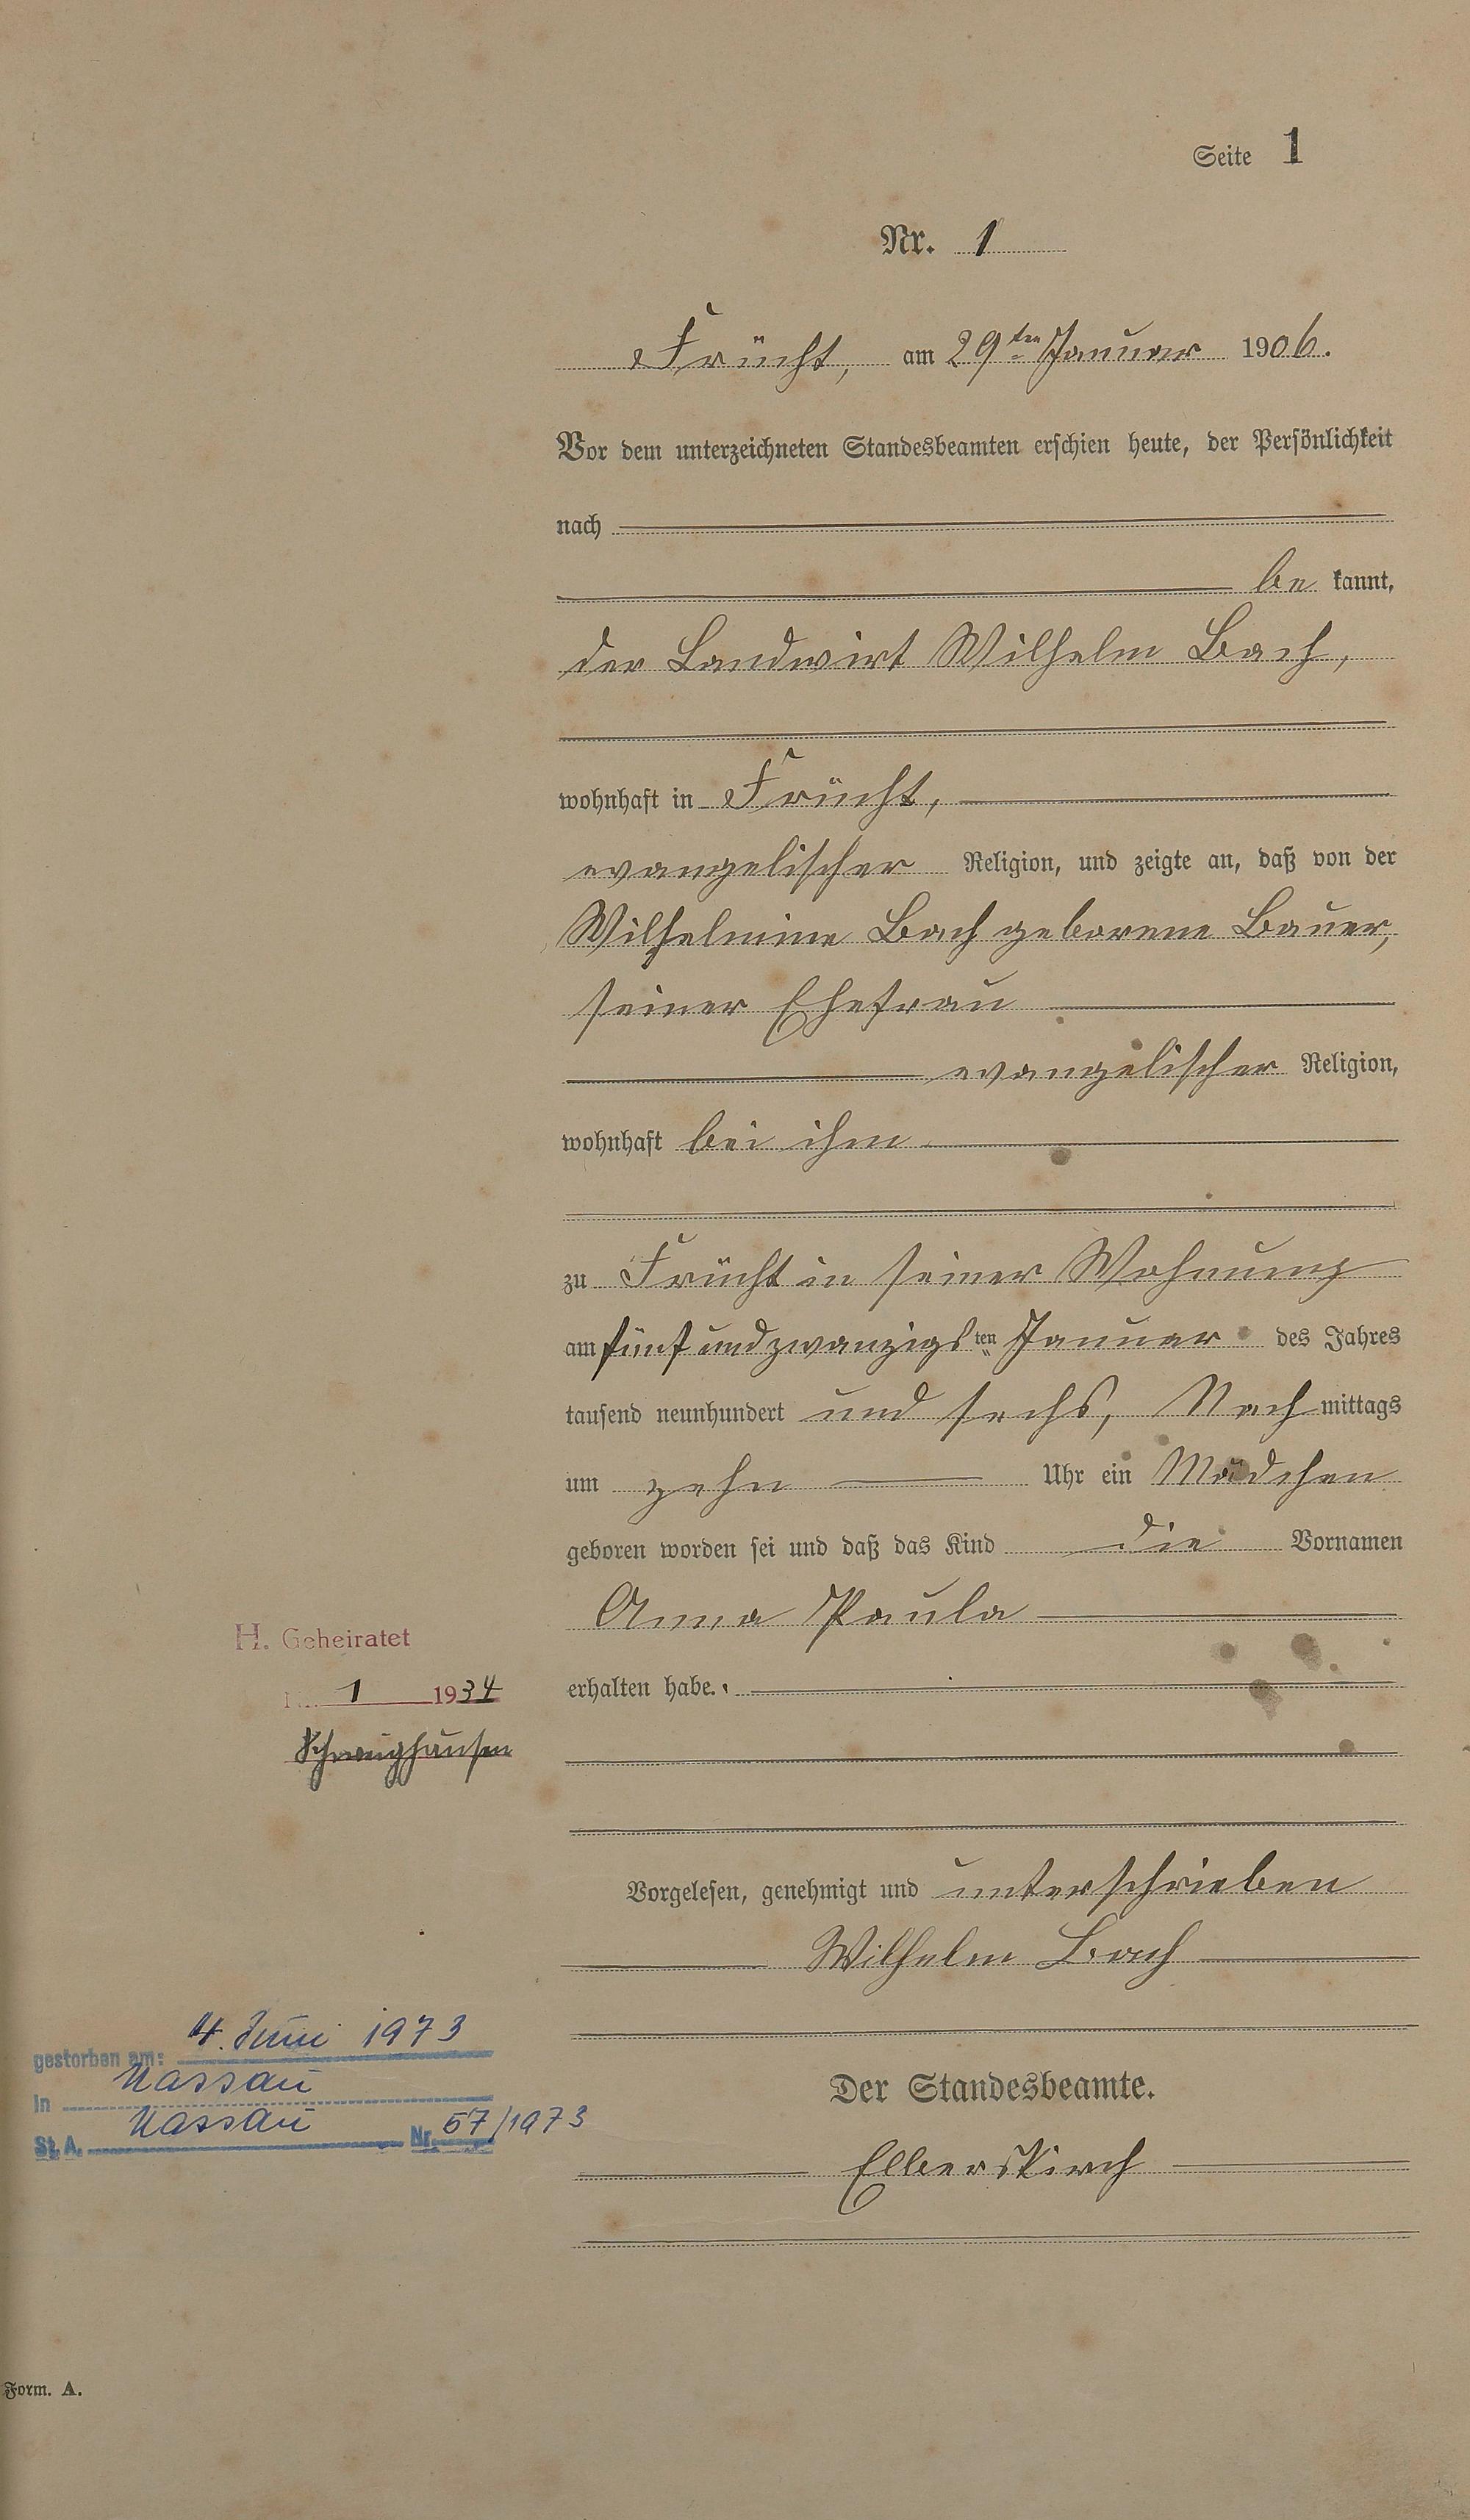 Seite 1
Nr. 1
Frücht, am 29ten Januar 1906.
Vor dem unterzeichneten Standesbeamten erschien heute, der Persönlichkeit
nach
be kannt,
der Landwirt Wilhelm Bach,
wohnhaft in Frücht,
evangelischer Religion, und zeigte an, daß von der
Wilhelmine Bach geborene Bauer,
seiner Ehefrau
evangelischer Religion,
wohnhaft bei ihm
zu Frücht in seiner Wohnung
am fünf und zwanzigs ten Januar des Jahres
tausend neunhundert und sechs, Nach mittags
um zehn Uhr ein Mädchen
geboren worden sei und daß das Kind die Vornamen
Anna Paula
erhalten habe.
H. Geheiratet
Nr. 1 1934
Schweighausen
Vorgelesen, genehmigt und unterschrieben
Wilhelm Bach
gestorben am: 4. Juni 1973
in Nassau
St. A. Nassau Nr. 57/1973
Der Standesbeamte.
Elberskirch
Form. A.